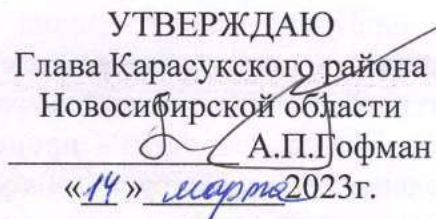 УТВЕРЖДАЮ
Глава Карасукского района
Новосибирской области
А.П.Гофман
«14» марта 2023г.